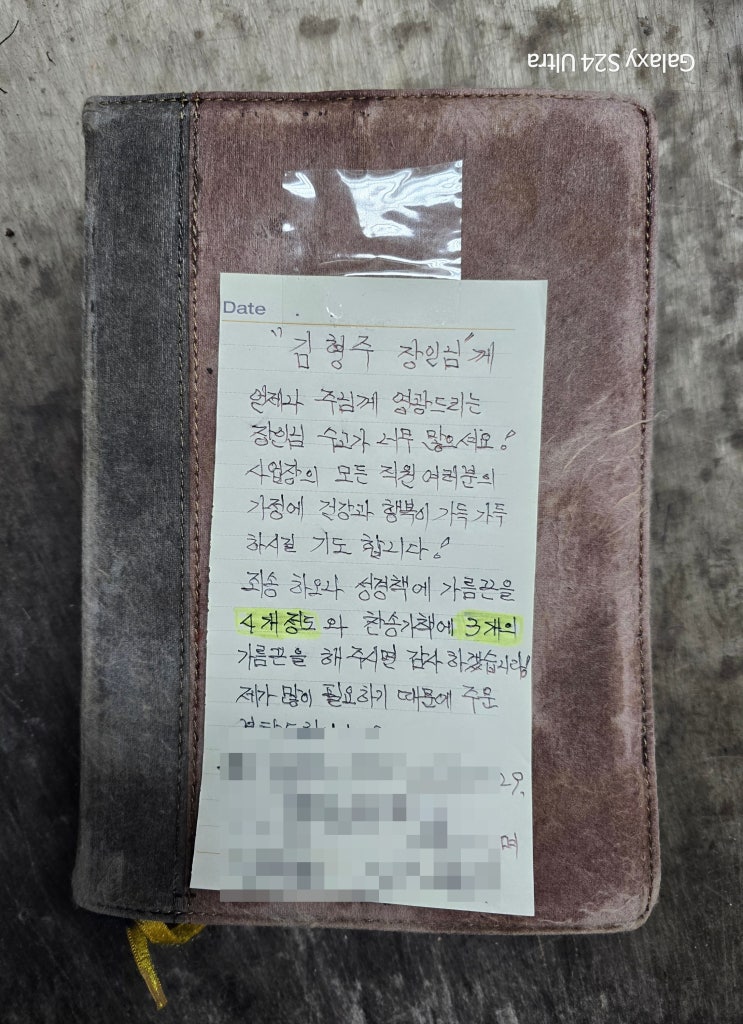 Galaxy S24 Ultra
Date
"김형주 장인님"께
언제나 주님께 영광드리는
장인님 수고가 너무 많으세요!
사업장의 모든 직원 여러분의
가정에 건강과 행복이 가득 가득
하시길 기도 합니다!
죄송 하오나 성경책에 가름끈을
4개정도 와 찬송가책에 3개의
가름끈을 해 주시면 감사 하겠습니다
제가 많이 필요하기 때문에 주문
29.
며